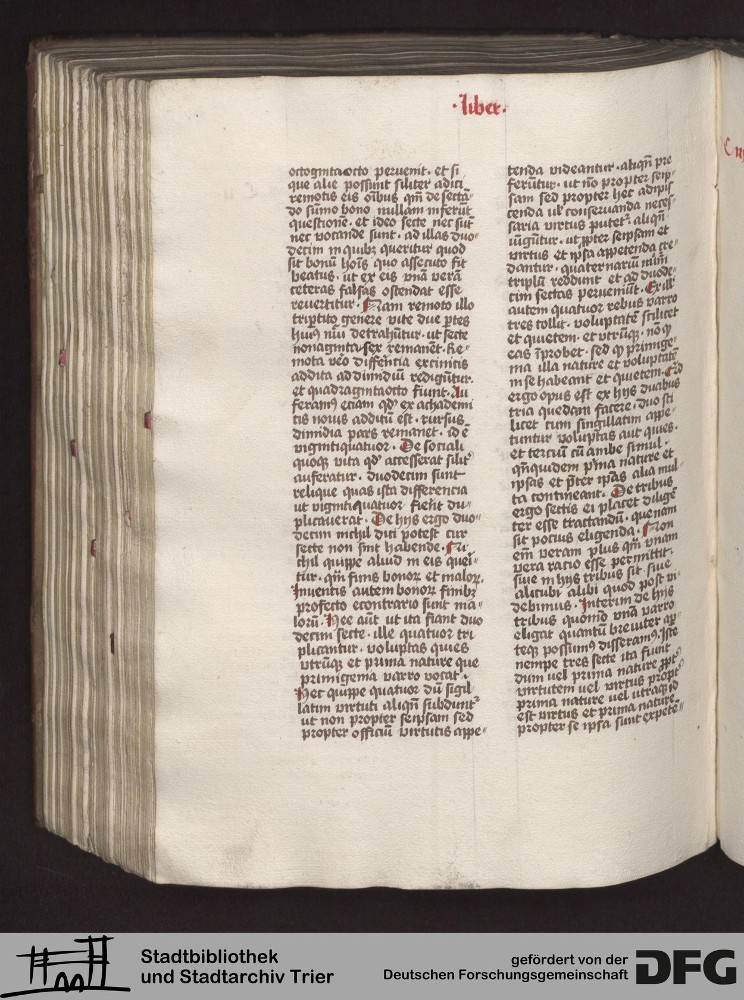 ·liber·
octogintaocto peruenit· et si
que alie possunt siliter adici
remotis eis oĩbus qm̃ de sectã
do sũmo bono nullam inferũt
questionẽ· et ideo secte nec sũt
nec vocande sunt· ad illas duo
decim in quibꝫ queritur quod
sit bonũ hoĩs quo assecuto fit
beatus· ut ex eis vnã verã
ceteras falsas ostendat esse
reuertitur· Nam remoto illo
tripertito genere vite due ꝑtes
huiꝰ nũi detrahũtur· ut secte
nonaginta sex remanẽt· Re
mota vẽo differẽtia ex cinicis
addita ad dimidiũ rediguntur·
et quadragintaocto fiunt· Au
feramꝰ etiam qd̛ ex achademi
tis nouis additũ est· rursus
dimidia pars remanet· id ẽ
vigintiquatuor· De sociali
quoqꝫ vita qd̛ accesserat silit̛
auferatur· duodecim sunt
relique quas ista differencia
ut vigintiquatuor fierẽt du
plicauerat· De hijs ergo duo
decim nichil dici potest cur
secte non sint habende· Ni
chil quippe aliud in eis quei
tur· qm̃ finis bonoꝝ et maloꝝ·
Inuentis autem bonoꝝ finibꝫ
profecto econtrario sunt ma
lorũ· Hee aũt ut ita fiant duo
decim secte· ille quatuor tri
plicantur· voluptas quies
vtrũqꝫ et prima nature que
primigenia varro vocat·
Hec quippe quatuor dũ sigil
latim virtuti aliqñ subdunt̛
ut non propter seipsam sed
propter officiũ virtutis appe
tenda videantur· aliqñ pre
ferũtur· ut nõ propter seip
sam sed propter hec adipis
cenda uel conseruanda neces
saria virtus putet̛· aliqñ
iũgũtur· ut ꝓpter seipsam et
virtus et ipsa appetenda cre
dantur· quaternariũ nũm
triplũ reddunt et ad duode
cim sectas perueniũt· Ex ill̛
autem quatuor rebus varro
tres tollit· voluptatẽ scilicet
et quietem· et vtrũqꝫ· nõ ꝙ
eas ĩprobet· sed ꝙ primige
nia illa nature et voluptatẽ
in se habeant et quietem· Qd̛
ergo opus est ex hijs duabus
tria quedam facere· duo sci
licet cum singillatim appe
tuntur voluptas aut quies·
et terciũ cũ ambe simul·
qñquidem pͥma nature et
ipsas et p̃ter ip̃as alia mul
ta contineant· De tribus
ergo sectis ei placet diligẽ
ter esse tractandũ· quenam
sit pocius eligenda· Non
em̃ veram plus qm̃ vnam
vera racio esse permittit·
siue in hijs tribus sit siue
alicubi alibi quod post vi
debimus· Interim de hijs
tribus quomõ vnã varro
eligat quantũ breuiter ap
teqꝫ possumꝰ disseramꝰ· Iste
nempe tres secte ita fiunt
dum uel prima nature ꝓpt̛
virtutem uel virtus propt̛
prima nature uel utraqꝫ id
est virtus et prima nature
propter se ipsa sunt expetẽ
Stadtbibliothek
und Stadtarchiv Trier
gefördert von der
Deutschen Forschungsgemeinschaft
DFG